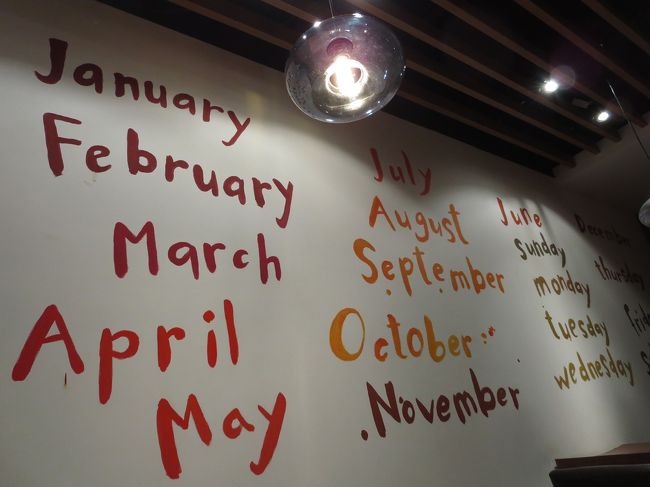 January
February
March
April
May
July
August
September
October
November
June
sunday
monday
tuesday
wednesday
December
thursday